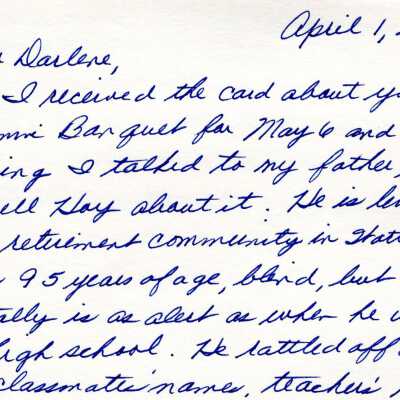 April 1,
Darlene,
I received the card about
Banquet for May 6 and
I talked to my father,
Hoy about it. He is
retirement community in
95 years of age, blind, but
is as alert as when he
high school. He rattled off
classmates' names, teachers'